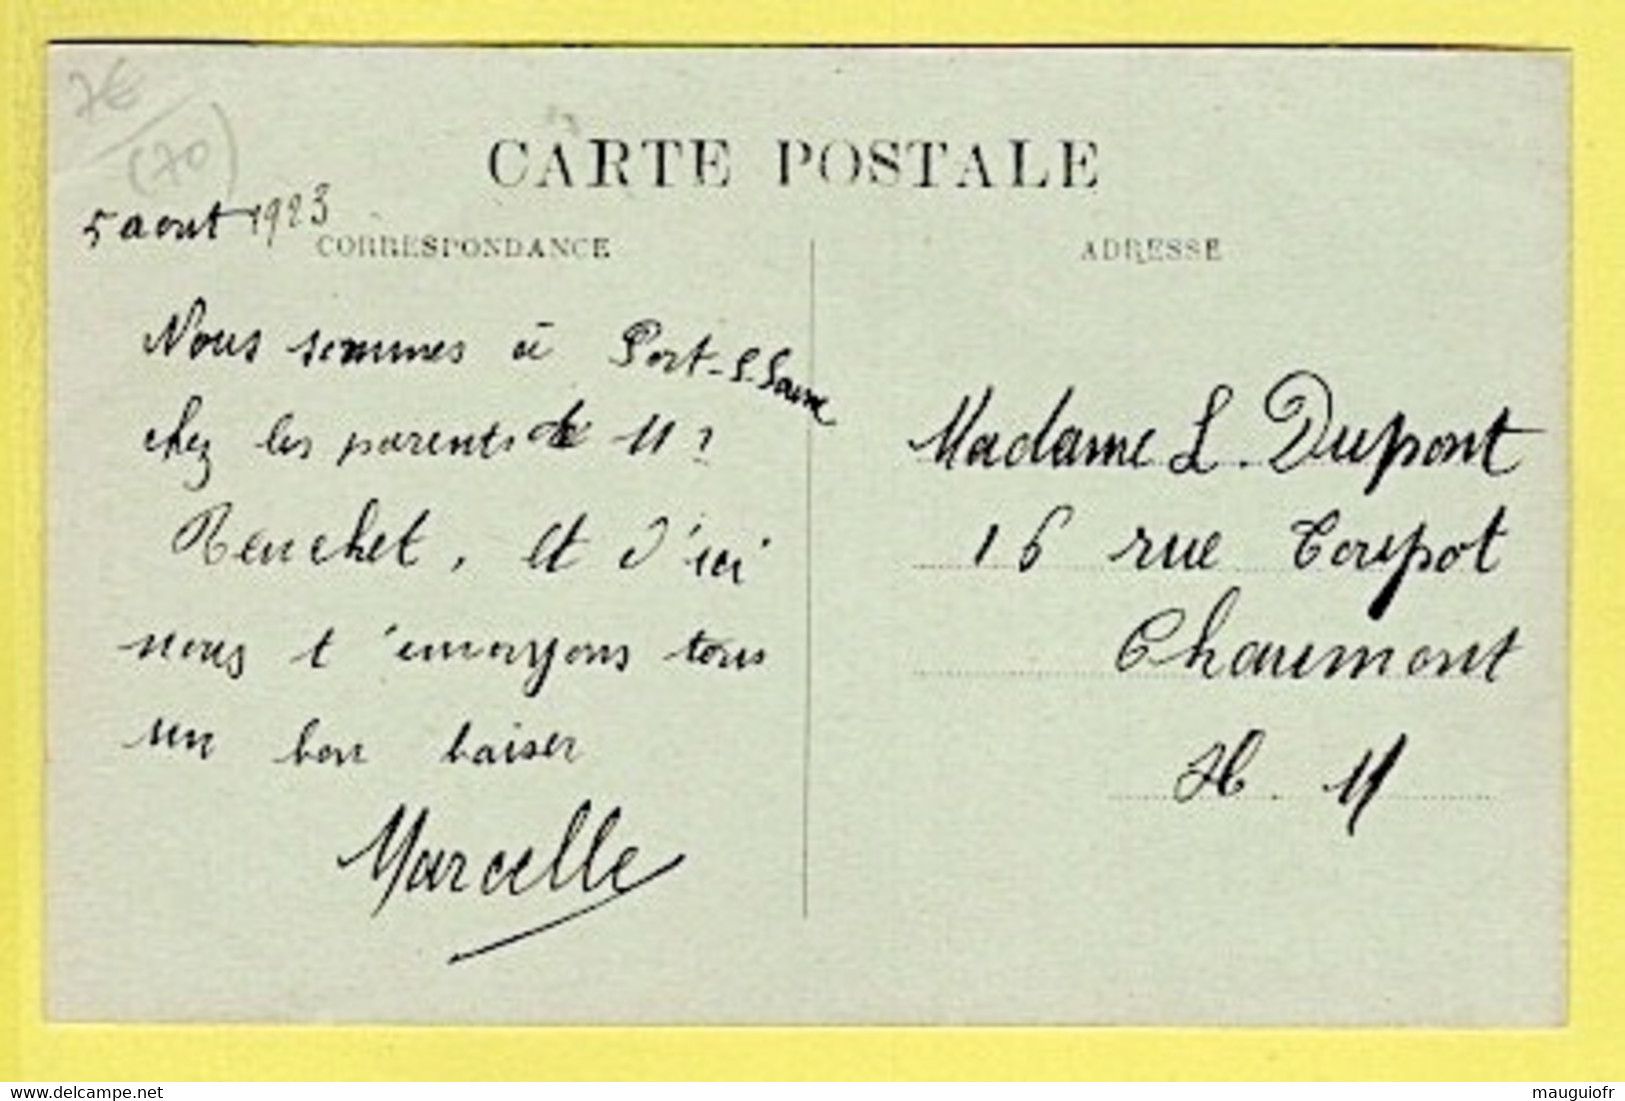 7€
(70)
CARTE POSTALE
5 aout 1923
CORRESPONDANCE
ADRESSE
Nous sommes à Port-S-Saône
chez les parents de Mr
Renchet, et d'ici
nous t'envoyons tous
un bon baiser
Marcelle
Madame L. Dupont
16 rue Toupot
Chaumont
H. M
delcampe.net
mauguiofr